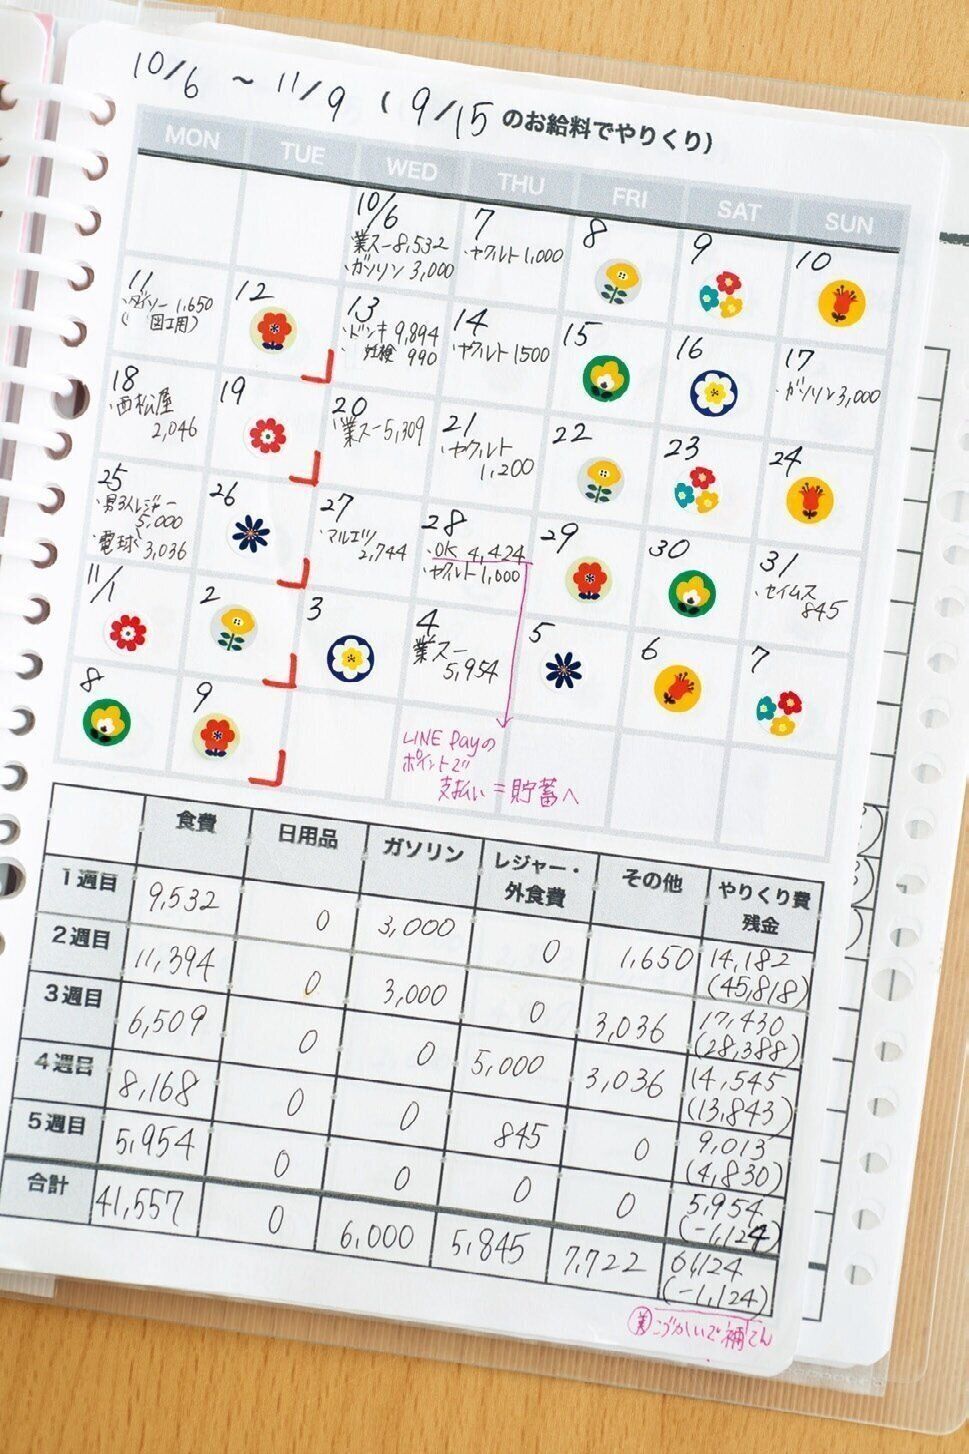 10/6 ~ 11/9 ( 9/15 のお給料でやりくり)
MON TUE WED THU FRI SAT SUN
10/6
業スー 8,532
ガソリン 3,000
7
・ヤクルト 1,000
8
9
10
11
・ダイソー 1,650
( 図工用)
12
13
・ドンキ 9,894
・妊検 990
14
・ヤクルト 1500
15
16
17
・ガソリン 3,000
18
・西松屋
2,046
19
20
・業スー 5,309
21
・ヤクルト
1,200
22
23
24
25
・男3人レジャー
5,000
・電球 3,036
26
27
・マルエツ
2,744
28
・OK 4,424
・ヤクルト 1,000
29
30
31
・セイムス
845
11/1
2
3
4
業スー
5,954
5
6
7
8
9
LINE Payの
ポイントで
支払い = 貯蓄へ
食費 日用品 ガソリン レジャー・外食費 その他 やりくり費残金
1週目 9,532 0 3,000 0 1,650 14,182 (45,818)
2週目 11,394 0 3,000 0 3,036 17,430 (28,388)
3週目 6,509 0 0 5,000 3,036 14,545 (13,843)
4週目 8,168 0 0 845 0 9,013 (4,830)
5週目 5,954 0 0 0 0 5,954 (-1,124)
合計 41,557 0 6,000 5,845 7,722 61,124 (-1,124)
こづかいで補てん